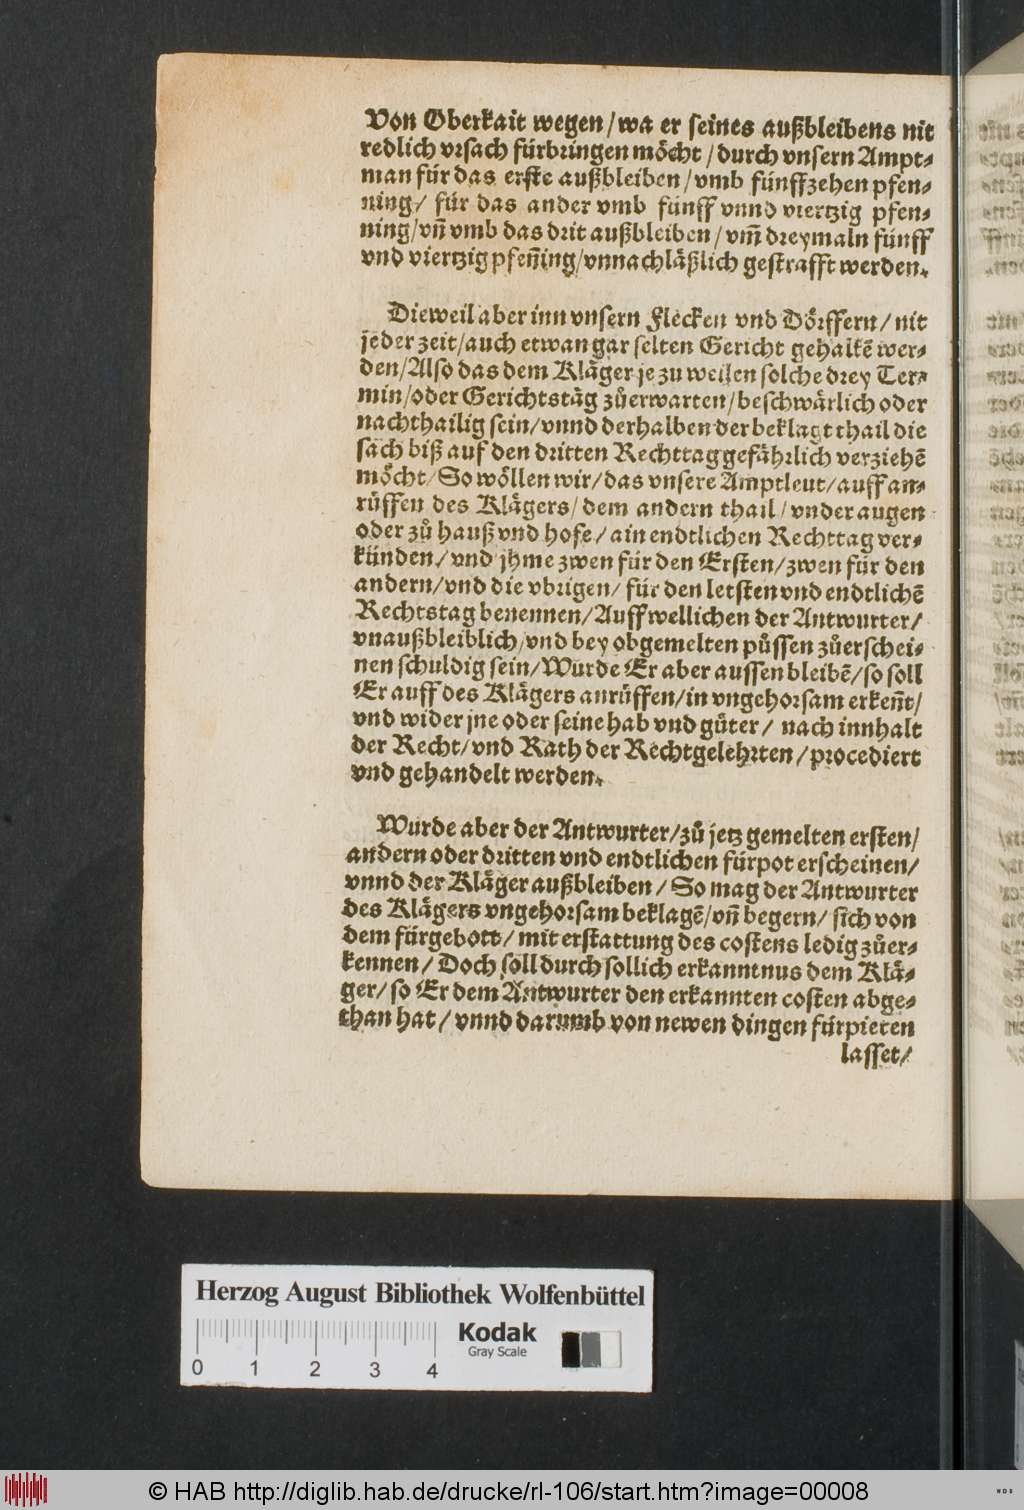 Von Oberkait wegen/wa er seines außbleibens nit
redlich vrsach fürbringen möcht/durch vnsern Ampt-
man für das erste außbleiben/vmb fünffzehen pfen-
ning/ für das ander vmb fünff vnnd viertzig pfen-
ning/vñ vmb das drit außbleiben/vm̃ dreymaln fünff
vnd viertzig pfeñing/vnnachläßlich gestrafft werden.
Dieweil aber inn vnsern Flecken vnd Dörffern/nit
jeder zeit/auch etwan gar selten Gericht gehaltẽ wer-
den/Also das dem Kläger je zu weilen solche drey Ter-
min/oder Gerichtstäg zůerwarten/beschwärlich oder
nachthailig sein/vnnd derhalben der beklagt thail die
sach biß auf den dritten Rechttag gefährlich verziehẽ
möcht/So wöllen wir/das vnsere Amptleut/auff an-
rüffen des Klägers/dem andern thail/vnder augen
oder zů hauß vnd hofe/ain endtlichen Rechttag ver-
künden/vnd jhme zwen für den Ersten/zwen für den
andern/vnd die vbrigen/ für den letsten vnd endtlichẽ
Rechtstag benennen/Auff wellichen der Antwurter/
vnaußbleiblich/vnd bey obgemelten půssen zůerschei-
nen schuldig sein/Wurde Er aber aussen bleibẽ/so soll
Er auff des Klägers anrüffen/in vngehorsam erkeñt/
vnd wider jne oder seine hab vnd güter/ nach innhalt
der Recht/vnd Rath der Rechtgelehrten/procediert
vnd gehandelt werden.
Wurde aber der Antwurter/zů jetz gemelten ersten/
andern oder dritten vnd endtlichen fürpot erscheinen/
vnnd der Kläger außbleiben/So mag der Antwurter
des Klägers vngehorsam beklagẽ/vñ begern/ sich von
dem fürgebott/mit erstattung des costens ledig zůer-
kennen/Doch soll durch sollich erkanntnus dem Klä-
ger/so Er dem Antwurter den erkannten costen abge-
than hat/vnnd darumb von newen dingen fürpieten
lasset/
Herzog August Bibliothek Wolfenbüttel
Kodak
Gray Scale
0 1 2 3 4
© HAB http://diglib.hab.de/drucke/rl-106/start.htm?image=00008